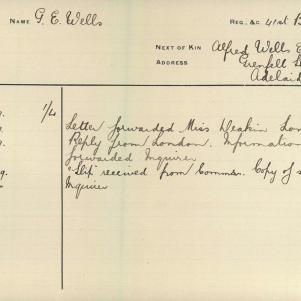 NAME G. E. Wells
REG. &C 41st B
NEXT OF KIN Alfred Wells E
ADDRESS Grenfell St
Adelaid
1/4 Letter forwarded Miss Deakin Lon
Reply from London. Information
forwarded Inquirer
"Slip received from Commsn. Copy of s
Inquirer